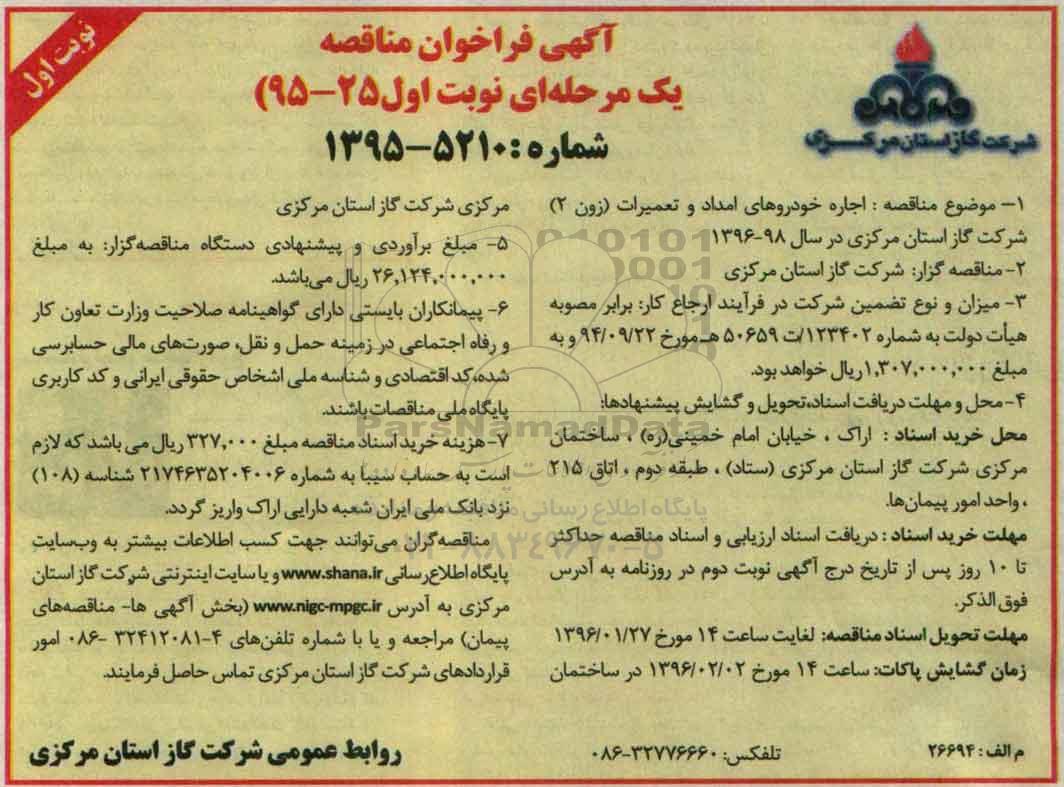 نوبت اول
آگهی فراخوان مناقصه
یک مرحله‌ای نوبت اول۲۵–۹۵)
شماره: ۵۲۱۰–۱۳۹۵
شرکت گاز استان مرکزی
۱– موضوع مناقصه : اجاره خودروهای امداد و تعمیرات (زون ۲)
شرکت گاز استان مرکزی در سال ۹۸-۱۳۹۶
۲- مناقصه گزار: شرکت گاز استان مرکزی
۳- میزان و نوع تضمین شرکت در فرآیند ارجاع کار: برابر مصوبه
هیأت دولت به شماره ۱۲۳۴۰۲/ت ۵۰۶۵۹ هـ مورخ ۹۴/۰۹/۲۲ و به
مبلغ ۱,۳۰۷,۰۰۰,۰۰۰ ریال خواهد بود.
۴- محل و مهلت دریافت اسناد،تحویل و گشایش پیشنهادها:
محل خرید اسناد : اراک ، خیابان امام خمینی(ره) ، ساختمان
مرکزی شرکت گاز استان مرکزی (ستاد) ، طبقه دوم ، اتاق ۲۱۵
، واحد امور پیمان‌ها.
مهلت خرید اسناد : دریافت اسناد ارزیابی و اسناد مناقصه حداکثر
تا ۱۰ روز پس از تاریخ درج آگهی نوبت دوم در روزنامه به آدرس
فوق الذکر.
مهلت تحویل اسناد مناقصه: لغایت ساعت ۱۴ مورخ ۱۳۹۶/۰۱/۲۷
زمان گشایش پاکات: ساعت ۱۴ مورخ ۱۳۹۶/۰۲/۰۲ در ساختمان
مرکزی شرکت گاز استان مرکزی
۵- مبلغ برآوردی و پیشنهادی دستگاه مناقصه‌گزار: به مبلغ
۲۶,۱۲۴,۰۰۰,۰۰۰ ریال می‌باشد.
۶- پیمانکاران بایستی دارای گواهینامه صلاحیت وزارت تعاون کار
و رفاه اجتماعی در زمینه حمل و نقل، صورت‌های مالی حسابرسی
شده،کد اقتصادی و شناسه ملی اشخاص حقوقی ایرانی و کد کاربری
پایگاه ملی مناقصات باشند.
۷- هزینه خرید اسناد مناقصه مبلغ ۳۲۷,۰۰۰ ریال می باشد که لازم
است به حساب سیبا به شماره ۲۱۷۴۶۳۵۲۰۴۰۰۶ شناسه (۱۰۸)
نزد بانک ملی ایران شعبه دارایی اراک واریز گردد.
مناقصه‌گران می‌توانند جهت کسب اطلاعات بیشتر به وب‌سایت
پایگاه اطلاع‌رسانی www.shana.ir و یا سایت اینترنتی شرکت گاز استان
مرکزی به آدرس www.nigc-mpgc.ir (بخش آگهی ها- مناقصه‌های
پیمان) مراجعه و یا با شماره تلفن‌های ۴-۳۲۴۱۲۰۸۱ -۰۸۶ امور
قراردادهای شرکت گاز استان مرکزی تماس حاصل فرمایند.
م الف : ۲۶۶۹۴
تلفکس: ۳۲۷۷۶۶۶۰-۰۸۶
روابط عمومی شرکت گاز استان مرکزی
ParsNamadData